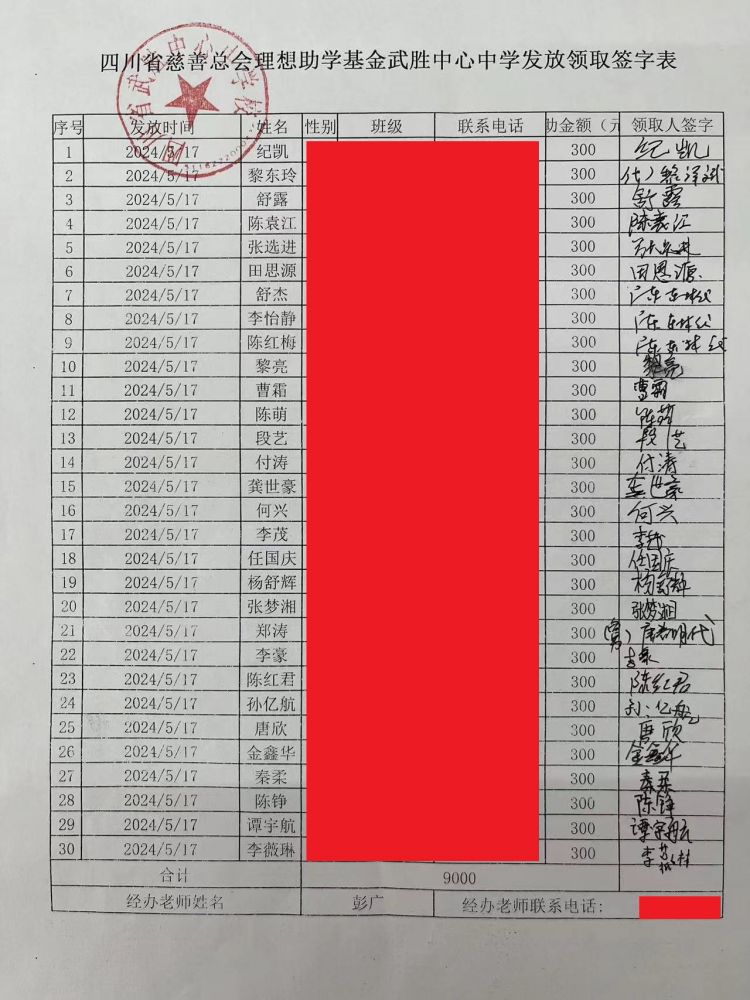 四川省慈善总会理想助学基金武胜中心中学发放领取签字表
序号 发放时间 姓名 性别 班级 联系电话 助金额（元 领取人签字
1 2024/5/17 纪凯 300 纪凯
2 2024/5/17 黎东玲 300
3 2024/5/17 舒露 300 舒露
4 2024/5/17 陈袁江 300 陈袁江
5 2024/5/17 张选进 300
6 2024/5/17 田思源 300 田思源
7 2024/5/17 舒杰 300
8 2024/5/17 李怡静 300
9 2024/5/17 陈红梅 300
10 2024/5/17 黎亮 300 黎亮
11 2024/5/17 曹霜 300 曹霜
12 2024/5/17 陈萌 300 陈萌
13 2024/5/17 段艺 300 段艺
14 2024/5/17 付涛 300 付涛
15 2024/5/17 龚世豪 300
16 2024/5/17 何兴 300 何兴
17 2024/5/17 李茂 300 李茂
18 2024/5/17 任国庆 300 任国庆
19 2024/5/17 杨舒辉 300 杨舒辉
20 2024/5/17 张梦湘 300 张梦湘
21 2024/5/17 郑涛 300
22 2024/5/17 李豪 300
23 2024/5/17 陈红君 300 陈红君
24 2024/5/17 孙亿航 300 孙亿航
25 2024/5/17 唐欣 300 唐欣
26 2024/5/17 金鑫华 300 金鑫华
27 2024/5/17 秦柔 300 秦柔
28 2024/5/17 陈铮 300 陈铮
29 2024/5/17 谭宇航 300 谭宇航
30 2024/5/17 李薇琳 300
合计 9000
经办老师姓名 彭广 经办老师联系电话: